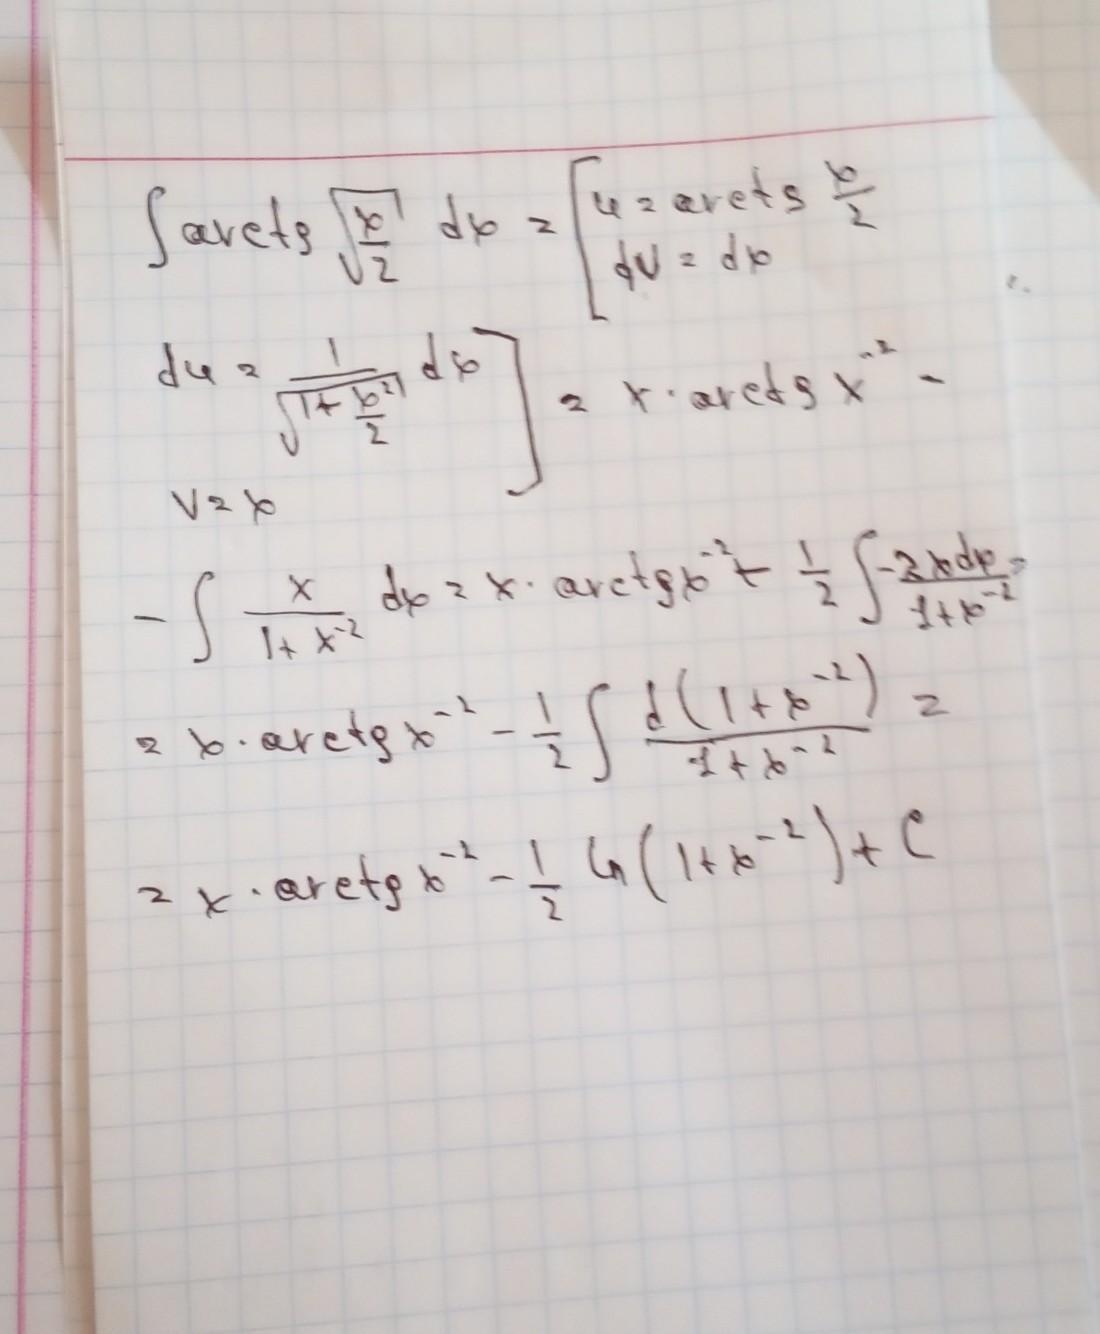 ∫ arctg √(x/2) dx = [ u = arctg x/2
dv = dx
du = 1/√(1+x²/2) dx ] = x · arctg x⁻² −
v = x
− ∫ x/(1+x⁻²) dx = x · arctg x⁻² + 1/2 ∫ −2xdx/(1+x⁻²) =
= x · arctg x⁻² − 1/2 ∫ d(1+x⁻²)/(1+x⁻²) =
= x · arctg x⁻² − 1/2 ln(1+x⁻²) + C